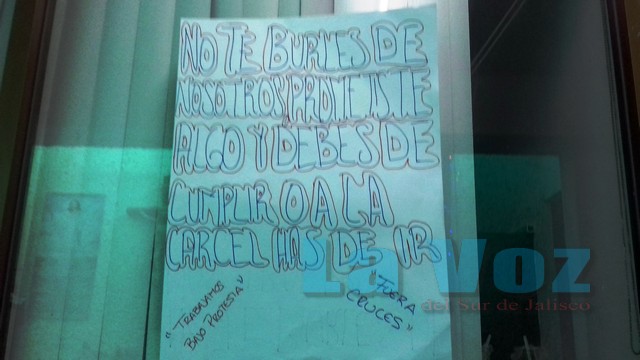 NO TE BURLES DE
NOSOTROS PROMETISTE
ALGO Y DEBES DE
CUMPLIR O A LA
CARCEL HAS DE IR
"TRABAJAMOS
BAJO PROTESTA"
"FUERA
CRUCES"
La Voz
del Sur de Jalisco